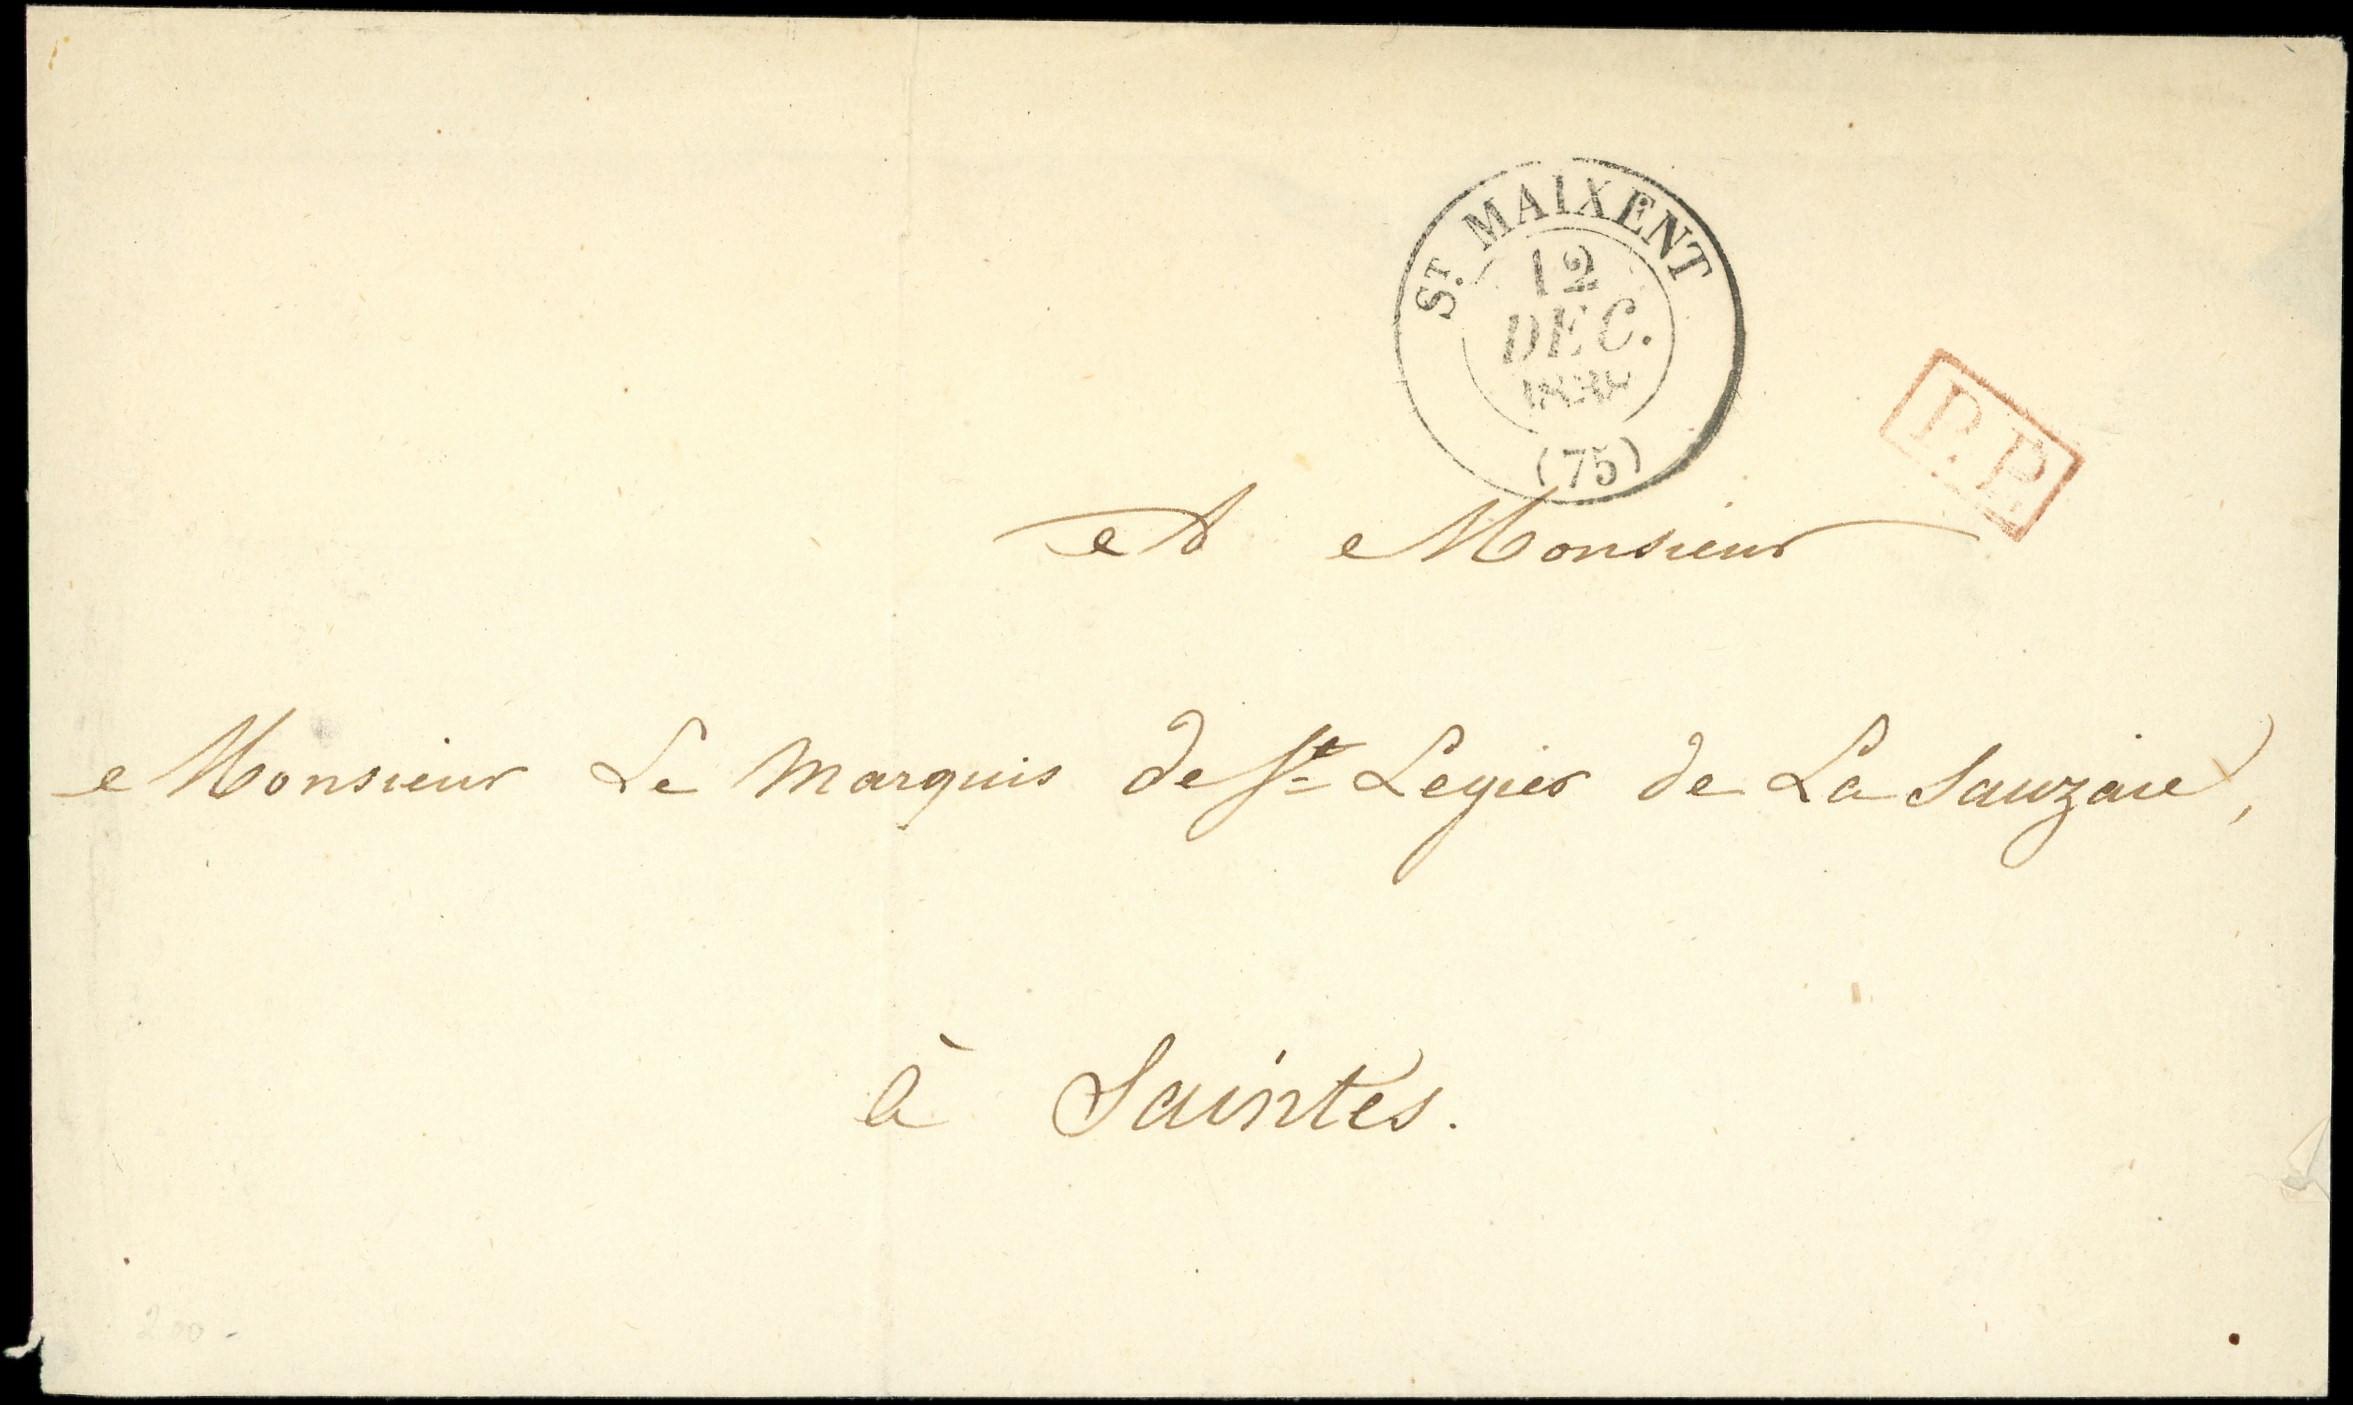 ST. MAIXENT
12
DEC.
(75)
P.P.
A Monsieur
Monsieur Le Marquis de St Legier de La Sauzaie,
à Saintes.
200-